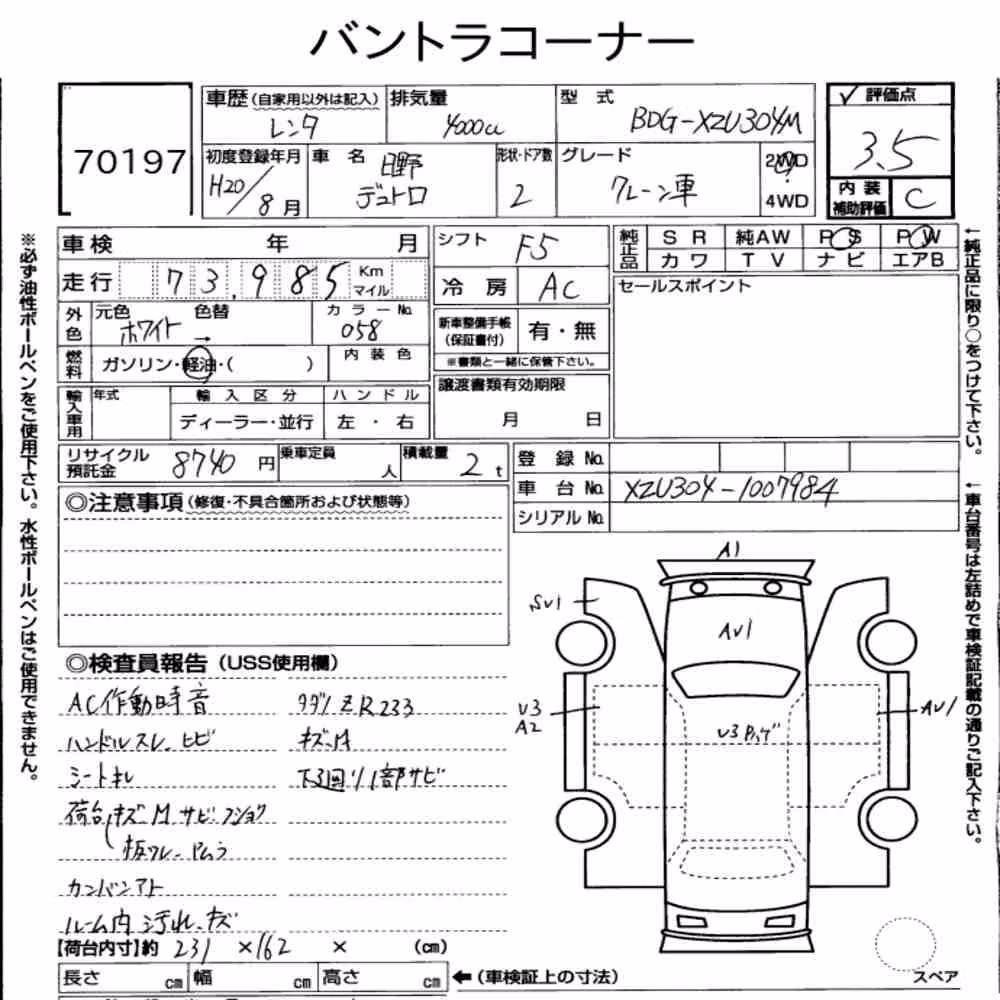 バントラコーナー
70197
車歴(自家用以外は記入) レンタ
排気量 4000cc
型式 BDG-XZU304M
✓ 評価点 3.5
初度登録年月 H20/8月
車名 日野 デュトロ
形状・ドア数 2
グレード クレーン車
2WD
4WD
内装補助評価 C
車検 年 月
シフト F5
純正品 SR 純AW PS PW
カワ TV ナビ エアB
走行 73,985 Km マイル
冷房 AC
セールスポイント
外色 元色 ホワイト → 色替
カラーNo. 058
新車整備手帳(保証書付) 有・無
※書類と一緒に保管下さい。
燃料 ガソリン・軽油・( )
内装色
譲渡書類有効期限 月 日
輸入車用 年式 輸入区分 ハンドル
ディーラー・並行 左・右
リサイクル預託金 8740円
乗車定員 人
積載量 2t
登録No.
車台No. XZU304-1007984
シリアルNo.
◎注意事項(修復・不具合箇所および状態等)
◎検査員報告(USS使用欄)
AC作動時音 タダノZR233
ハンドルスレ.ヒビ キズ.M
シートキレ 下廻り1部サビ
荷台 キズ M サビ フショク
板ワレ
カンバンアト
ルーム内 汚れ.キズ
【荷台内寸】約 231 ×162 × (cm)
長さ cm 幅 cm 高さ cm ←(車検証上の寸法)
A1
SV1
AV1
U3
A2
U3
AU1
スペア
※必ず油性ボールペンをご使用下さい。水性ボールペンはご使用できません。
←純正品に限り○をつけて下さい。
←車台番号は左詰めで車検証記載の通りご記入下さい。